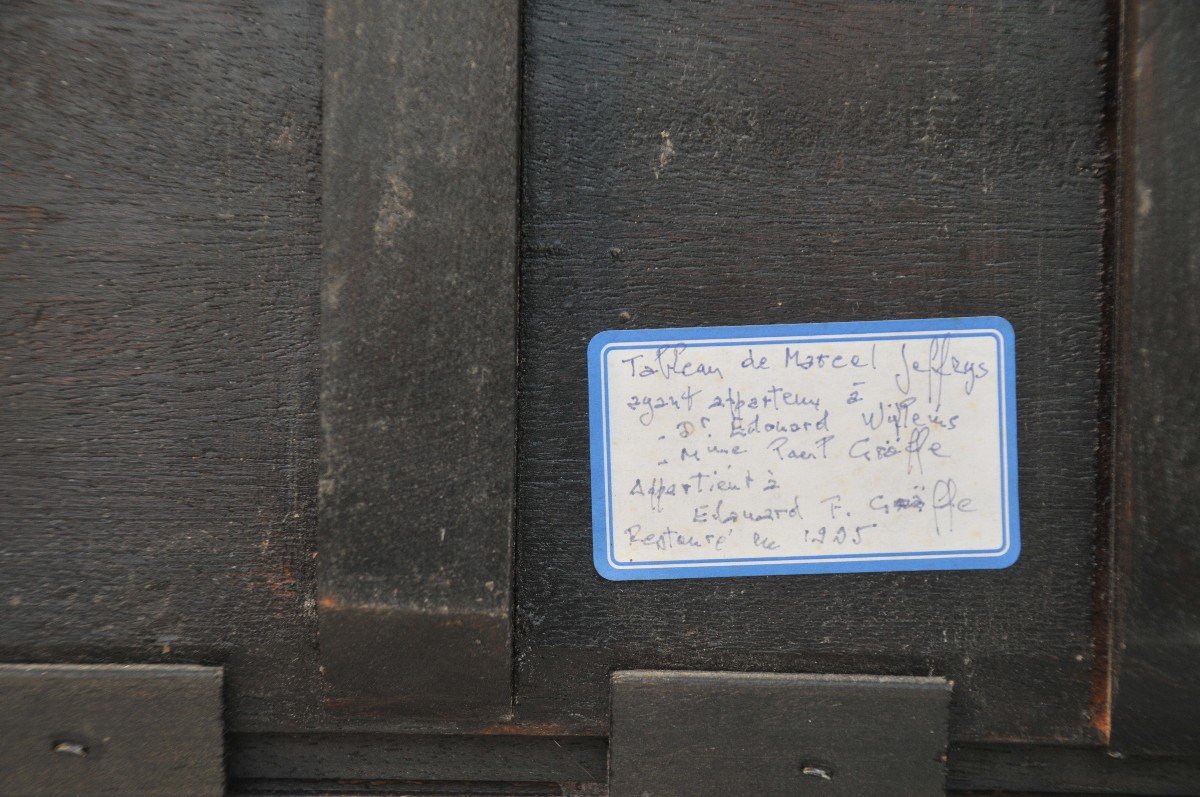 Tableau de Marcel Jeffrys
ayant appartenu à
- Dr Edouard Willems
- Mme Paul Gräffe
Appartient à
Edouard F. Gräffe
Restauré en 1995